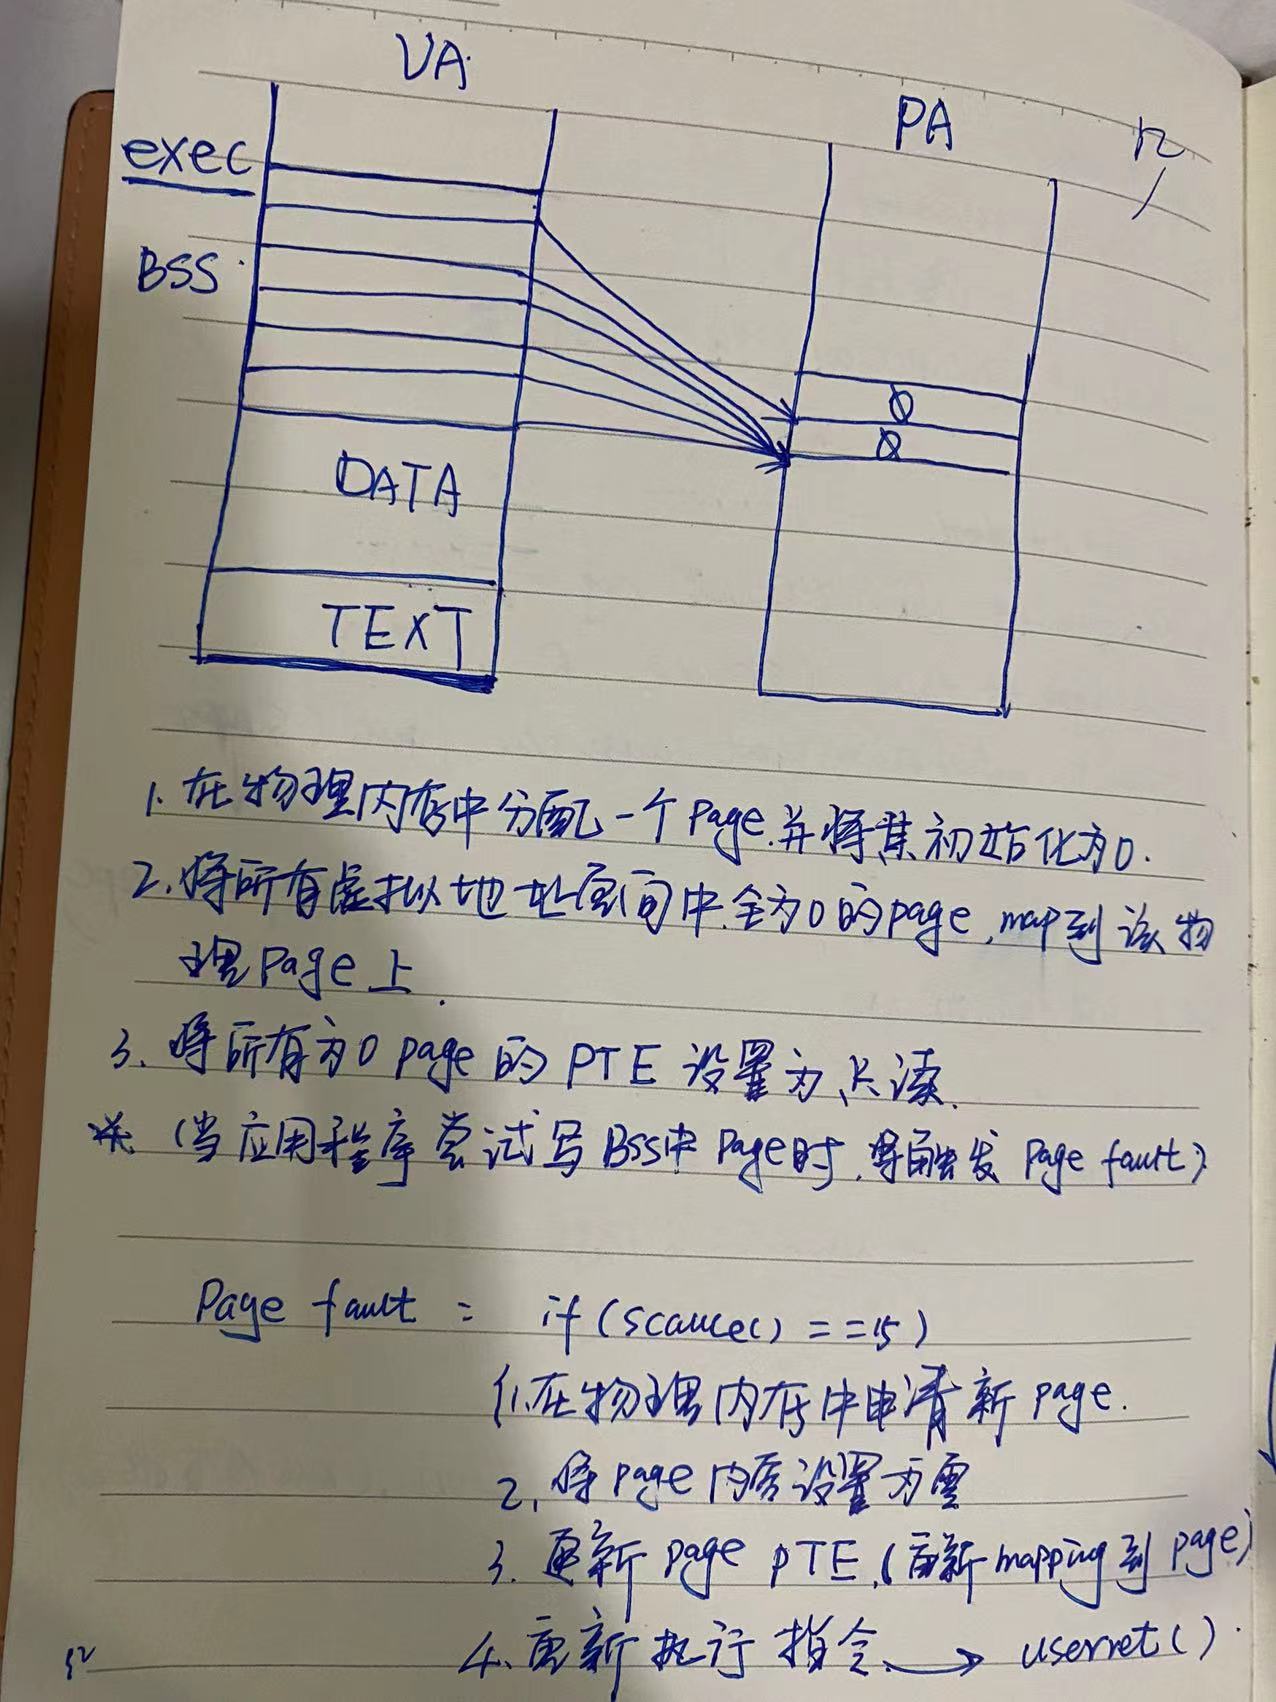 VA
PA
exec
BSS
0
0
DATA
TEXT
1. 在物理内存中分配一个page.并将其初始化为0.
2. 将所有虚拟地址空间中.全为0的page,map到该物
理page上.
3. 将所有为0 page的PTE设置为只读.
* (当应用程序尝试写BSS中page时.将触发page fault)
Page fault: if(scause()==15)
1.在物理内存中申请新page.
2. 将page内容设置为零
3. 更新page PTE.(重新mapping到page)
4. 重新执行指令. → userret().